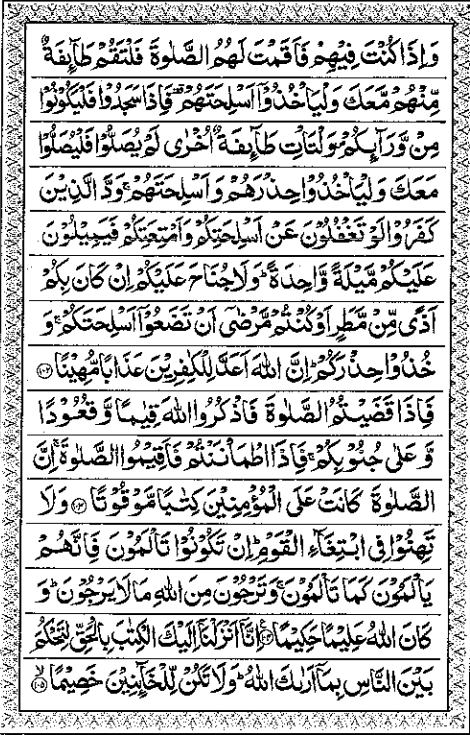 وَاِذَا كُنْتَ فِيْهِمْ فَاَقَمْتَ لَهُمُ الصَّلٰوةَ فَلْتَقُمْ طَآئِفَةٌ
مِّنْهُمْ مَّعَكَ وَلْيَاْخُذُوْۤا اَسْلِحَتَهُمْ ۫ فَاِذَا سَجَدُوْا فَلْيَكُوْنُوْا
مِنْ وَّرَآئِكُمْ ۪ وَلْتَاْتِ طَآئِفَةٌ اُخْرٰى لَمْ يُصَلُّوْا فَلْيُصَلُّوْا
مَعَكَ وَلْيَاْخُذُوْا حِذْرَهُمْ وَاَسْلِحَتَهُمْ ۚ وَدَّ الَّذِيْنَ
كَفَرُوْا لَوْ تَغْفُلُوْنَ عَنْ اَسْلِحَتِكُمْ وَاَمْتِعَتِكُمْ فَيَمِيْلُوْنَ
عَلَيْكُمْ مَّيْلَةً وَّاحِدَةً ؕ وَلَا جُنَاحَ عَلَيْكُمْ اِنْ كَانَ بِكُمْ
اَذًى مِّنْ مَّطَرٍ اَوْ كُنْتُمْ مَّرْضٰۤى اَنْ تَضَعُوْۤا اَسْلِحَتَكُمْ ۚ وَ
خُذُوْا حِذْرَكُمْ ؕ اِنَّ اللّٰهَ اَعَدَّ لِلْكٰفِرِيْنَ عَذَابًا مُّهِيْنًا ۝۱۰۲
فَاِذَا قَضَيْتُمُ الصَّلٰوةَ فَاذْكُرُوا اللّٰهَ قِيٰمًا وَّ قُعُوْدًا
وَّ عَلٰى جُنُوْبِكُمْ ۚ فَاِذَا اطْمَاْنَنْتُمْ فَاَقِيْمُوا الصَّلٰوةَ ۚ اِنَّ
الصَّلٰوةَ كَانَتْ عَلَى الْمُؤْمِنِيْنَ كِتٰبًا مَّوْقُوْتًا ۝۱۰۳ وَلَا
تَهِنُوْا فِى ابْتِغَآءِ الْقَوْمِ ؕ اِنْ تَكُوْنُوْا تَاْلَمُوْنَ فَاِنَّهُمْ
يَاْلَمُوْنَ كَمَا تَاْلَمُوْنَ ۚ وَتَرْجُوْنَ مِنَ اللّٰهِ مَا لَا يَرْجُوْنَ ؕ وَ
كَانَ اللّٰهُ عَلِيْمًا حَكِيْمًا ۝۱۰۴ اِنَّاۤ اَنْزَلْنَاۤ اِلَيْكَ الْكِتٰبَ بِالْحَقِّ لِتَحْكُمَ
بَيْنَ النَّاسِ بِمَاۤ اَرٰىكَ اللّٰهُ ؕ وَلَا تَكُنْ لِّلْخَآئِنِيْنَ خَصِيْمًا ۝۱۰۵